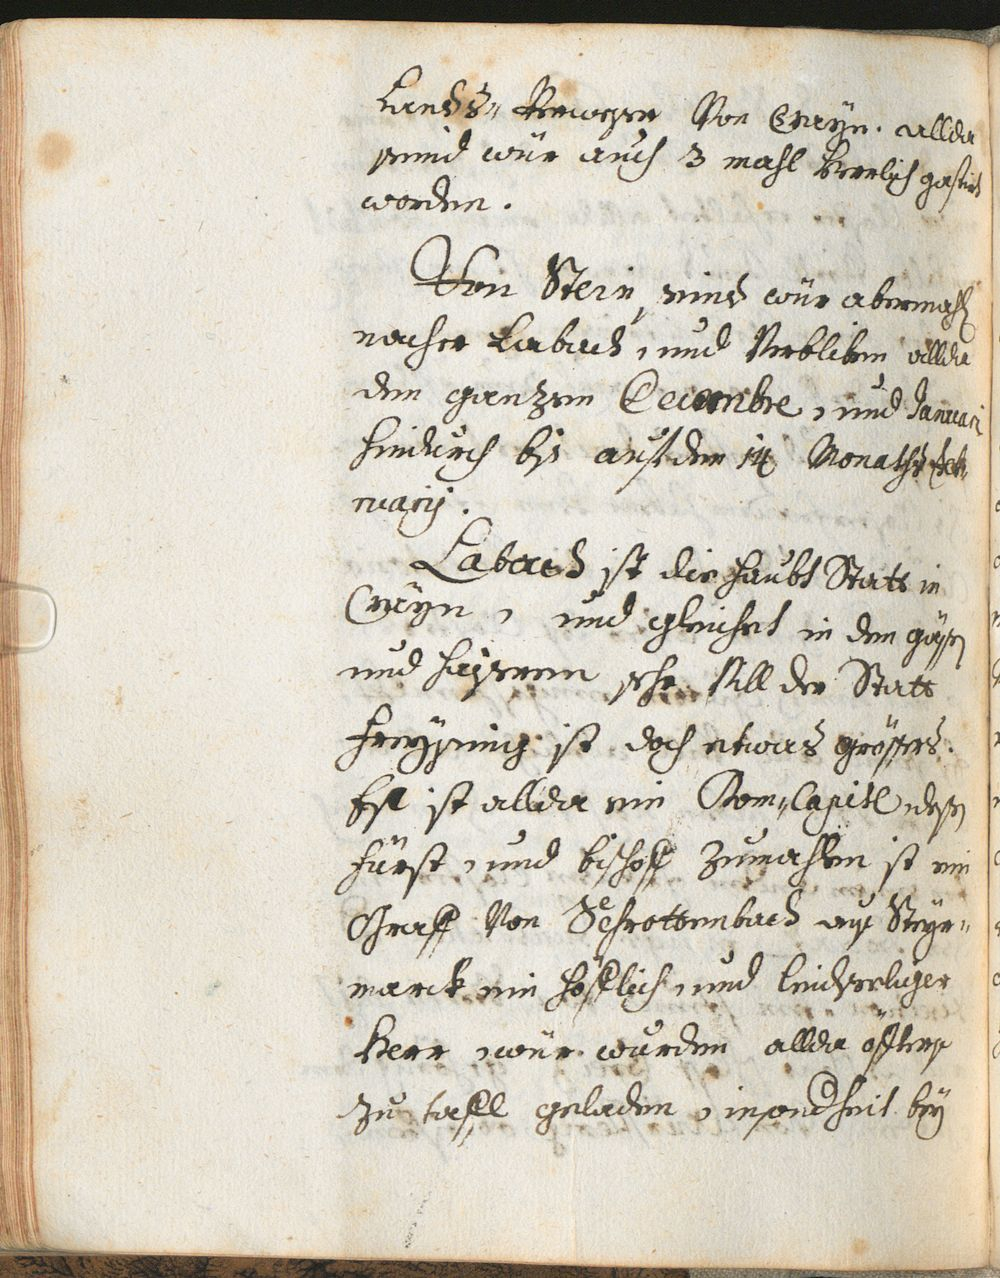 Landts-Verweser Von Crayn. allda
seind wür auch 3 mahl Herrlich gastirt
worden.
Von Stein, seind wür abermahl
nacher Labach, und Verbliben allda
den ganzen Decembre, und Januari
hindurch bis auf den 14 Monaths Feb-
ruarij.
Labach ist die haubt Statt in
Crayn, und gleichet in den gässen
und heysern sehr Vill der Statt
Freysing ist doch etwas grössers.
Es ist allda ein Dom-Capitl dessen
Fürst, und bischoff zumahlen ist ein
Graff Von Schrottenbach aus Steyr-
marck ein höfflich und leidseeliger
Herr, wür wurden allda öffters
zu taffl geladen, insondheit bey